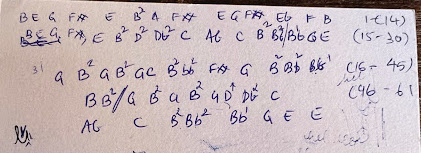 B E G F# E B² A F# E G F# Eb F B 1-(14)
B E G F# E B² D² Db² C AG C B² B²/Bb G E (15-30)
31 G B² G B² GC B² bb² F# G B² Bb² bb' (15 - 45)
B B²/ G B² G B² G D² Db² C (46 - 61
AG C B² Bb² Bb' G E E